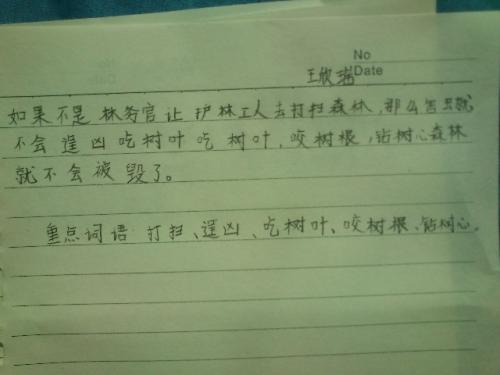 No
王欣瑞Date
如果不是林务官让护林工人去打扫森林,那么害虫就
不会逞凶吃树叶吃树叶,咬树根,钻树心森林
就不会被毁了。
重点词语 打扫、逞凶、吃树叶、咬树根、钻树心。